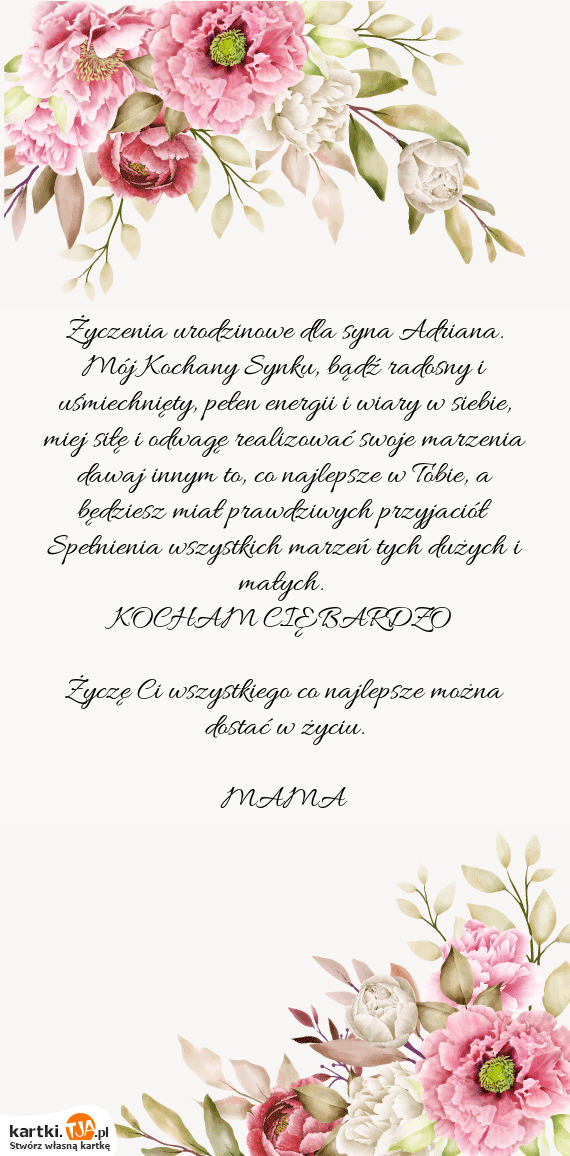 Życzenia urodzinowe dla syna Adriana.
Mój Kochany Synku, bądź radosny i
uśmiechnięty, pełen energii i wiary w siebie,
miej siłę i odwagę realizować swoje marzenia
dawaj innym to, co najlepsze w Tobie, a
będziesz miał prawdziwych przyjaciół
Spełnienia wszystkich marzeń tych dużych i
małych.
KOCHAM CIĘ BARDZO
Życzę Ci wszystkiego co najlepsze można
dostać w życiu.
MAMA
kartki.TJA.pl
Stwórz własną kartkę